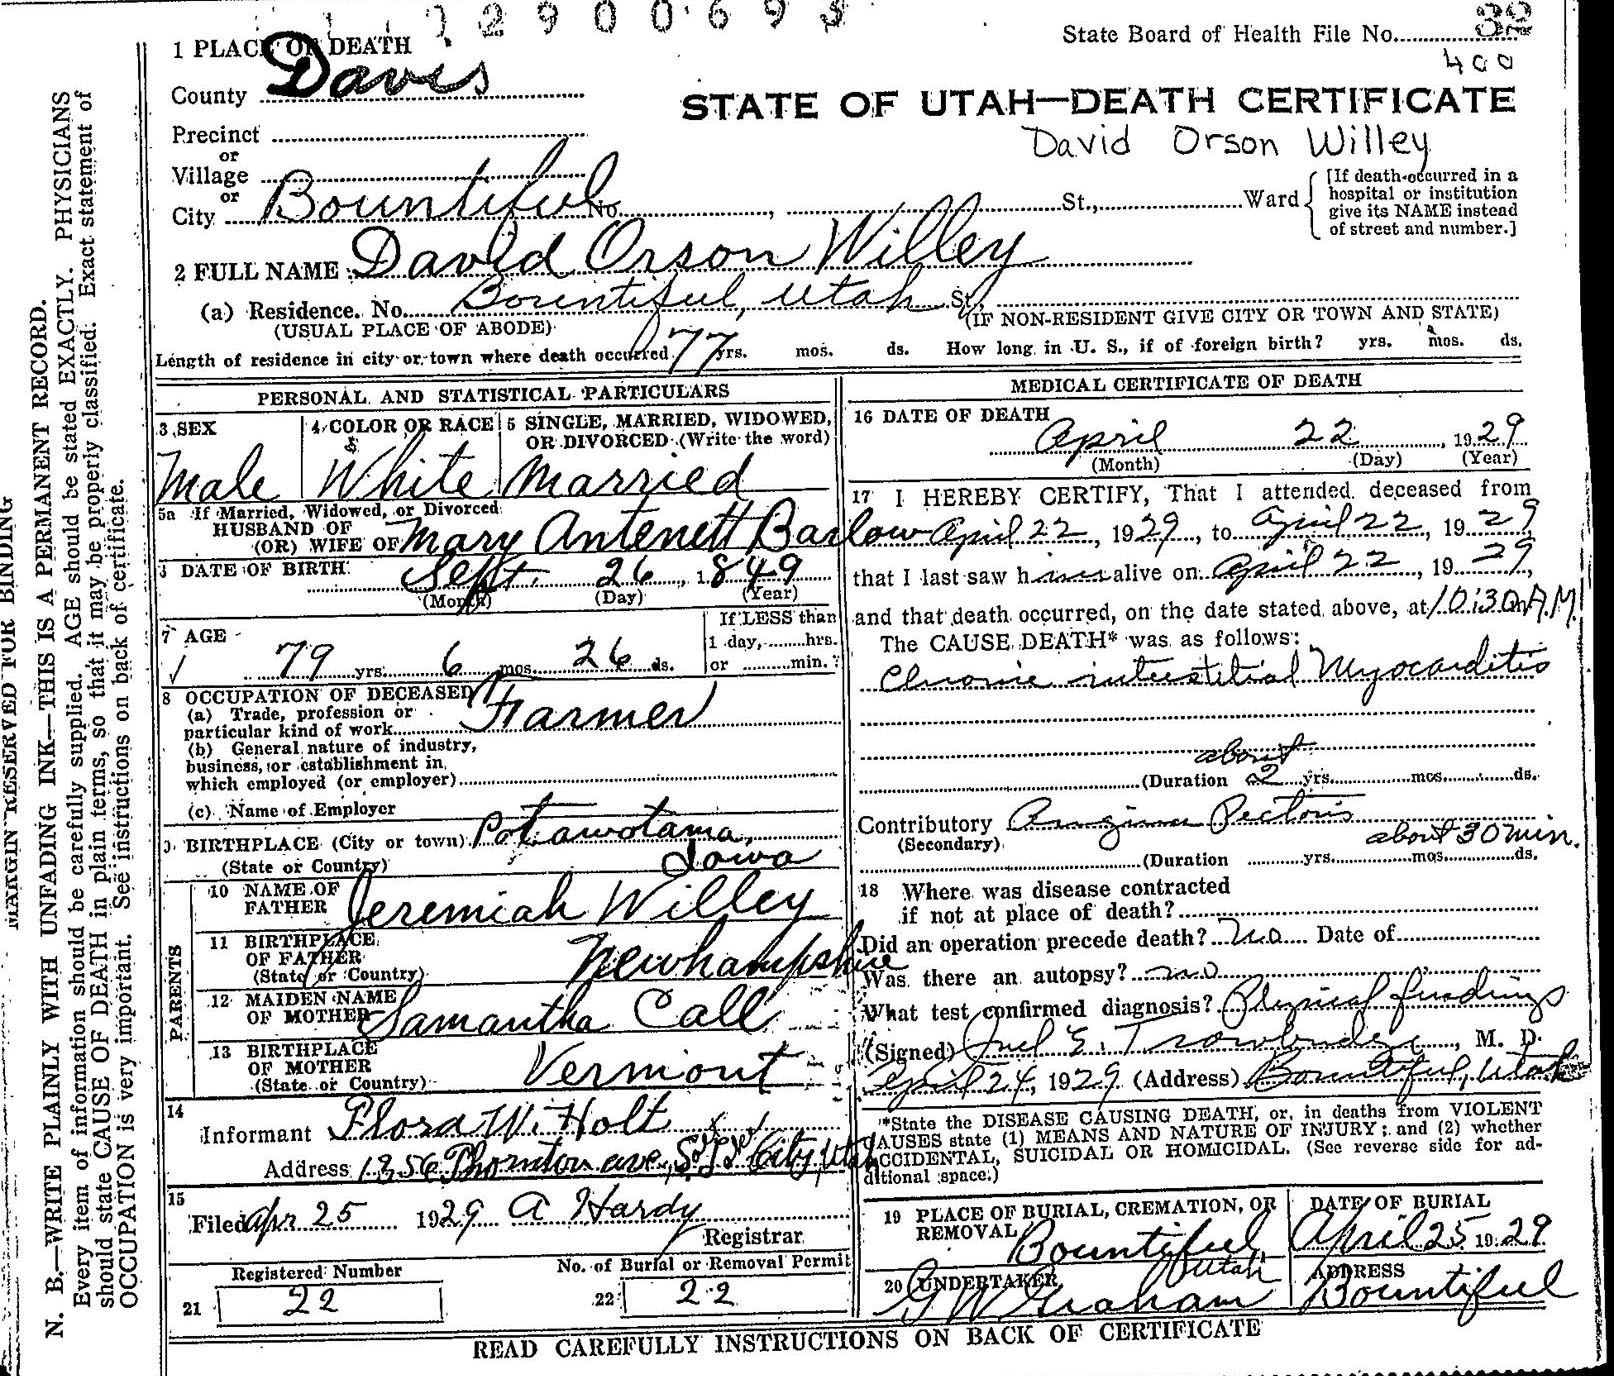 12900693
State Board of Health File No. 32
400
1 PLACE OF DEATH
County Davis
STATE OF UTAH—DEATH CERTIFICATE
David Orson Willey
Precinct
or
Village
or
City Bountiful No. , St., Ward
[If death occurred in a
hospital or institution
give its NAME instead
of street and number.]
2 FULL NAME David Orson Willey
(a) Residence. No. Bountiful, Utah St.,
(USUAL PLACE OF ABODE)
(IF NON-RESIDENT GIVE CITY OR TOWN AND STATE)
Length of residence in city or town where death occurred 77 yrs. mos. ds. How long in U. S., if of foreign birth? yrs. mos. ds.
PERSONAL AND STATISTICAL PARTICULARS
3 SEX
Male
4 COLOR OR RACE
White
5 SINGLE, MARRIED, WIDOWED,
OR DIVORCED (Write the word)
Married
5a If Married, Widowed, or Divorced
HUSBAND OF
(OR) WIFE OF Mary Antenett Barlow
DATE OF BIRTH Sept. 26, 1849
(Month) (Day) (Year)
7 AGE
79 yrs. 6 mos. 26 ds.
If LESS than
1 day, hrs.
or min.?
8 OCCUPATION OF DECEASED
(a) Trade, profession or
particular kind of work Farmer
(b) General nature of industry,
business, or establishment in
which employed (or employer)
(c) Name of Employer
9 BIRTHPLACE (City or town) Potawotama,
(State or Country) Iowa
PARENTS
10 NAME OF
FATHER Jeremiah Willey
11 BIRTHPLACE
OF FATHER
(State or Country) Newhampshire
12 MAIDEN NAME
OF MOTHER Samantha Call
13 BIRTHPLACE
OF MOTHER
(State or Country) Vermont
14
Informant Flora W. Holt
Address 1356 Thornton ave, City, Utah
15
Filed Apr 25 1929 A Hardy
Registrar
Registered Number
21 22
No. of Burial or Removal Permit
22 22
MEDICAL CERTIFICATE OF DEATH
16 DATE OF DEATH
April 22, 1929
(Month) (Day) (Year)
17 I HEREBY CERTIFY, That I attended deceased from
April 22, 1929, to April 22, 1929
that I last saw him alive on April 22, 1929,
and that death occurred, on the date stated above, at 10:30 A.M.
The CAUSE DEATH* was as follows:
Chronic interstitial Myocarditis
about
(Duration 2 yrs. mos. ds.
Contributory Angina Pectoris
(Secondary) about 30 min.
(Duration yrs. mos. ds.
18 Where was disease contracted
if not at place of death?
Did an operation precede death? No Date of
Was there an autopsy? no
What test confirmed diagnosis? Physical findings
(Signed) E. Trowbridge, M. D.
April 24, 1929 (Address) Bountiful, Utah
*State the DISEASE CAUSING DEATH, or, in deaths from VIOLENT
CAUSES state (1) MEANS AND NATURE OF INJURY; and (2) whether
ACCIDENTAL, SUICIDAL OR HOMICIDAL. (See reverse side for ad-
ditional space.)
19 PLACE OF BURIAL, CREMATION, OR
REMOVAL Bountiful,
Utah
DATE OF BURIAL
April 25 1929
20 UNDERTAKER
G W Graham
ADDRESS
Bountiful
READ CAREFULLY INSTRUCTIONS ON BACK OF CERTIFICATE
MARGIN RESERVED FOR BINDING
N. B.—WRITE PLAINLY WITH UNFADING INK—THIS IS A PERMANENT RECORD.
Every item of information should be carefully supplied. AGE should be stated EXACTLY. PHYSICIANS
should state CAUSE OF DEATH in plain terms, so that it may be properly classified. Exact statement of
OCCUPATION is very important. See instructions on back of certificate.